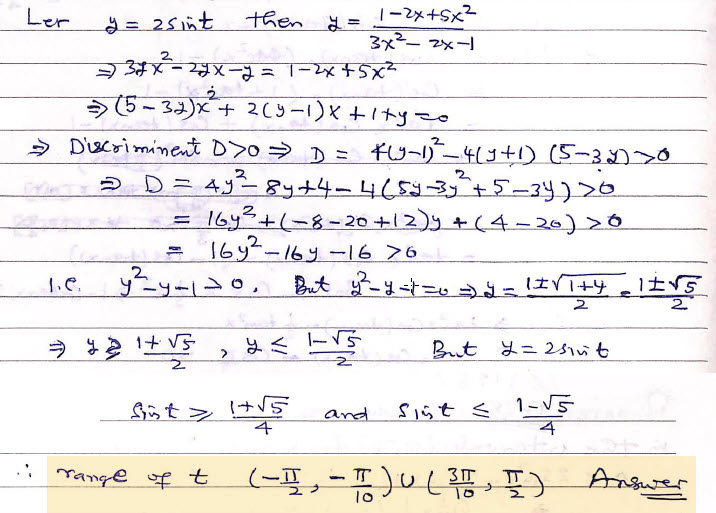 Let y = 2sint then y = (1-2x+5x²)/(3x²-2x-1)
⇒ 3yx²-2yx-y = 1-2x+5x²
⇒ (5-3y)x² + 2(y-1)x + 1+y = 0
⇒ Discriminent D>0 ⇒ D = 4(y-1)²-4(y+1)(5-3y)>0
⇒ D = 4y²-8y+4-4(5y-3y²+5-3y)>0
= 16y²+(-8-20+12)y+(4-20)>0
= 16y²-16y-16>0
i.e. y²-y-1>0. But y²-y-1=0 ⇒ y = (1±√1+4)/2 = (1±√5)/2
⇒ y ≥ (1+√5)/2 , y ≤ (1-√5)/2 But y = 2sint
Sint ≥ (1+√5)/4 and sint ≤ (1-√5)/4
∴ range of t (-π/2, -π/10) ∪ (3π/10, π/2) Answer